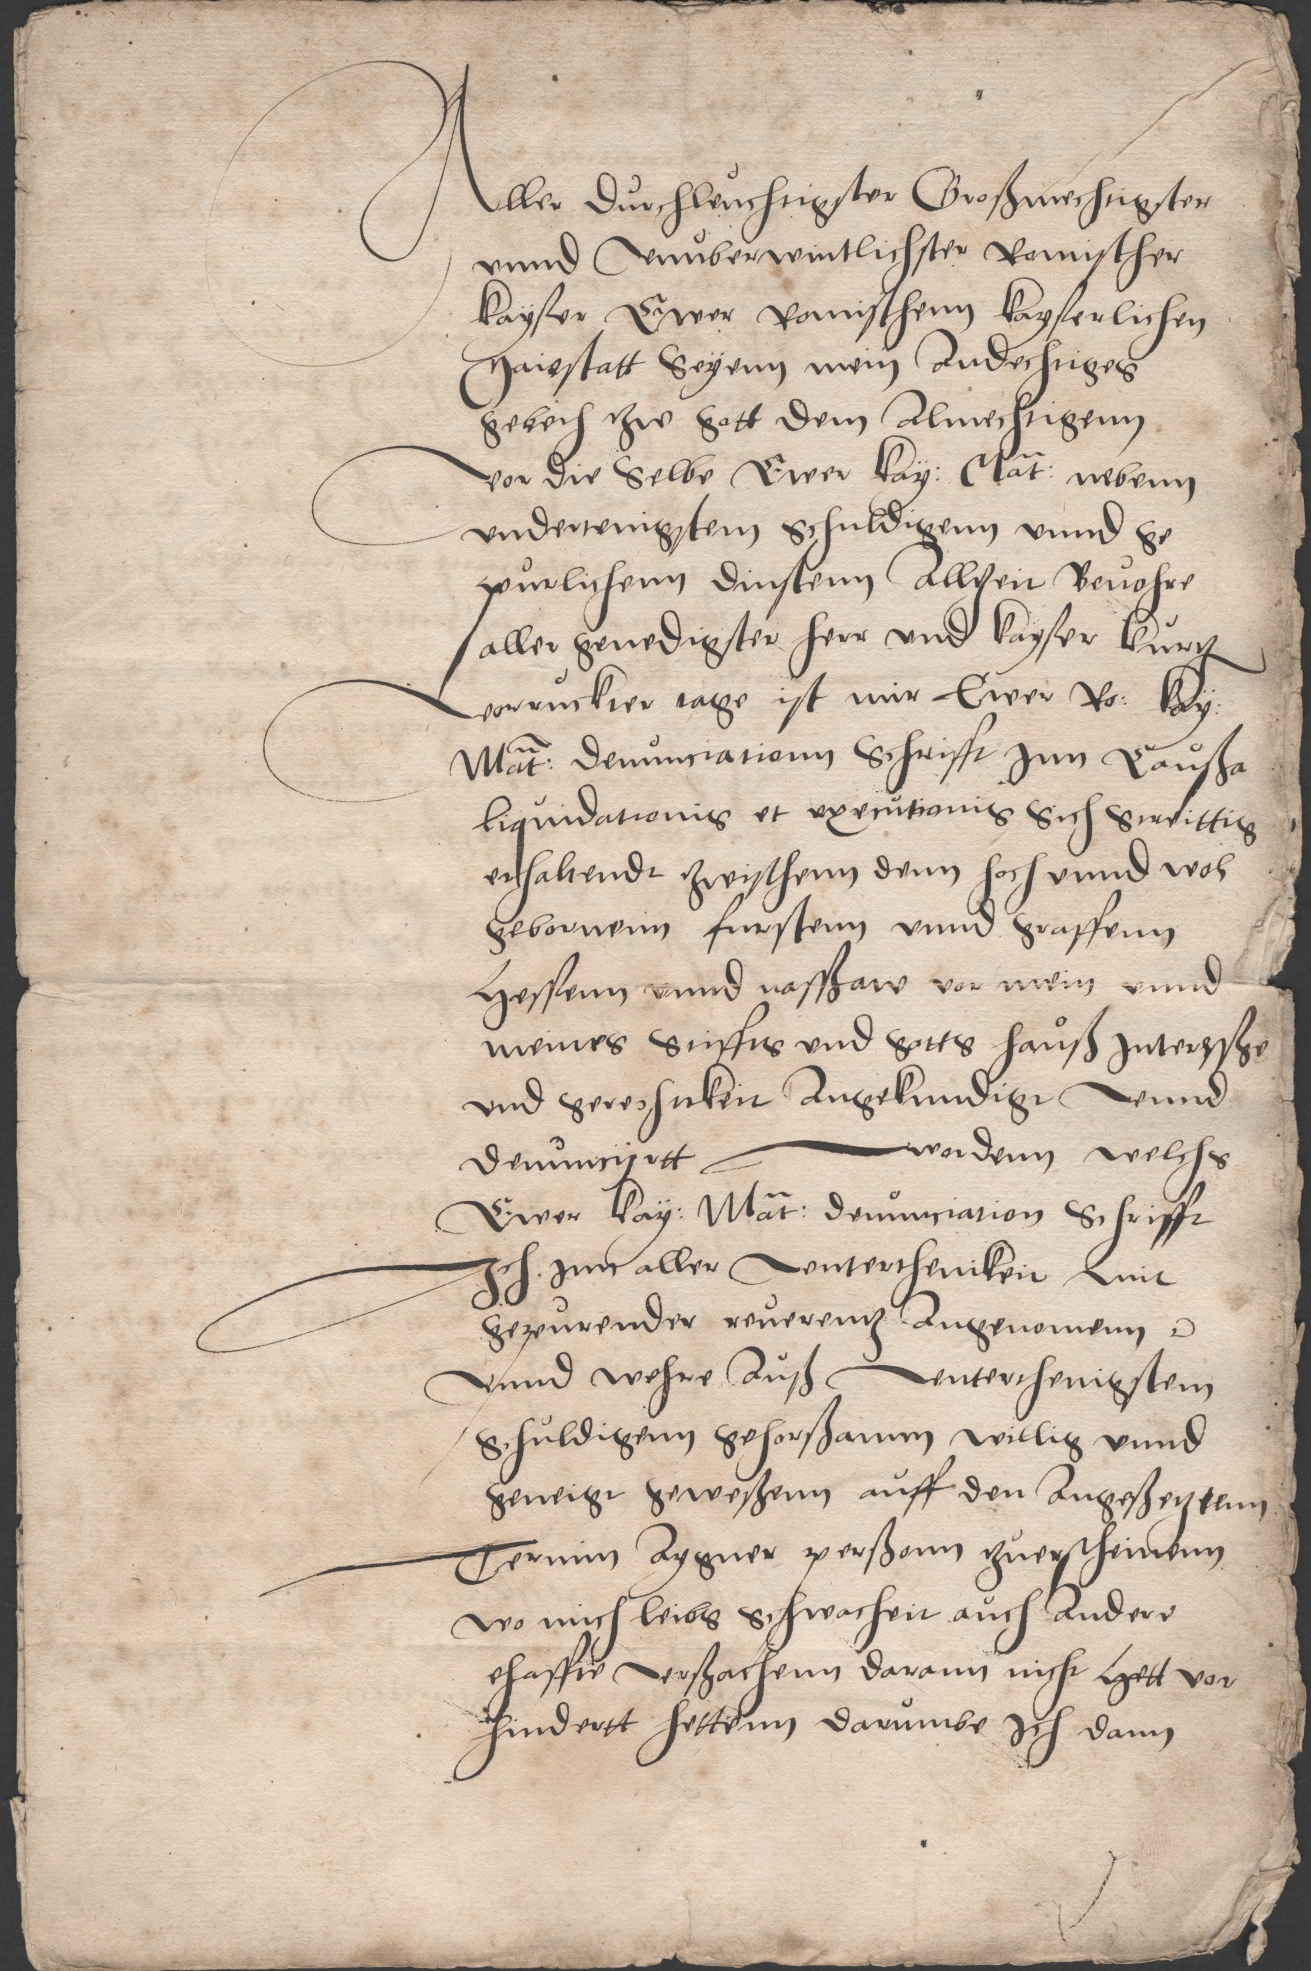 Aller Durchleuchtigster Großmechtigster
vnnd Vnuberwintlichster Romischer
kayser Ewer Romischenn kayserlichen
Maiestatt Seyenn mein Andechtiges
gebeth zw gott dem Almechtigenn
vor die Selbe Ewer kay: Mat: nebenn
vndertenigstem schuldigenn vnnd ge
purlichenn dinstenn Allzeit Beuohre
aller genedigster herr vnd kayser kurtz
vorruckter tage ist mir Ewer Ro: kay:
Mat: denunciationn Schrifft Jnn Caußa
liquidationis et executionis sich streittig
erhaltendt zwischenn denn hoch vnnd wol
gebornenn furstenn vnnd graffenn
Hessenn vnnd nassaw vor mein vnnd
meines Stiffts vnd gotts hauß Jnteresße
vnd gerechtikeit Angekundigt Vnnd
denuncijrtt wordenn welchs
Ewer kay: Mat: denunciation Schrifft
Jch Jnn aller Vntertheniķeit mit
gepurender reuerentz Angenomenn
Vnnd wehre Auß Vnterthenigstem
schuldigenn gehorßamm willig vnnd
geneigt geweßenn auff den Angeßetztenn
Termin Aygner perßonn zuerscheinenn
wo mich leibs schwacheit auch Andere
ehaffte Verßachenn darann nicht hett vor
hindertt hettenn darumbe Jch dann